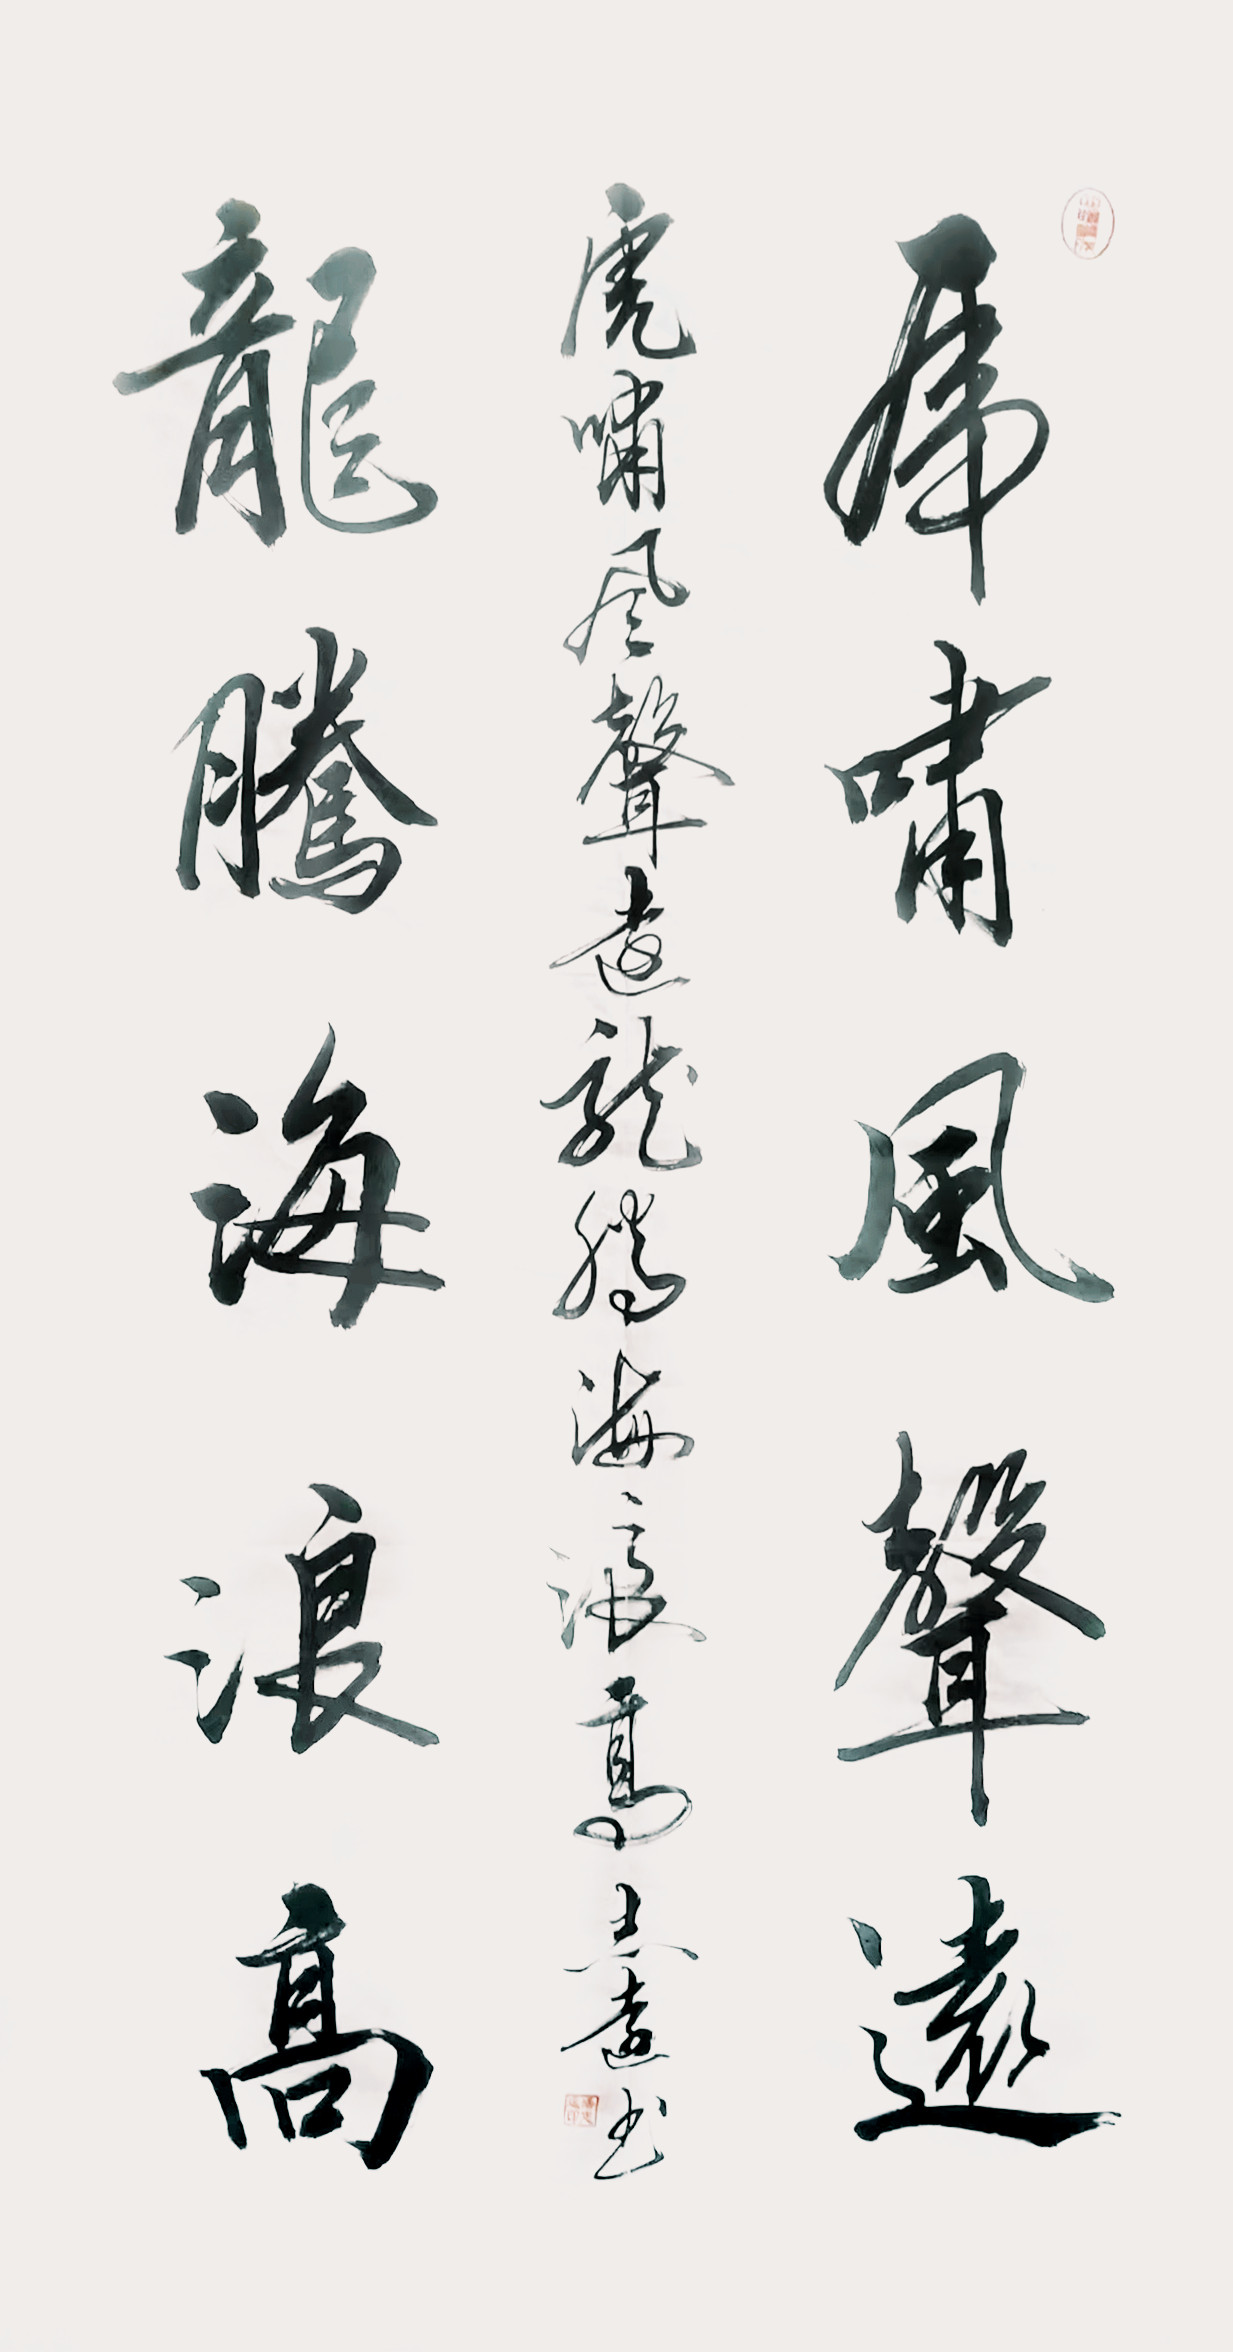 虎嘯風聲遠
虎嘯風聲遠龍騰海浪高志遠书
龍騰海浪高